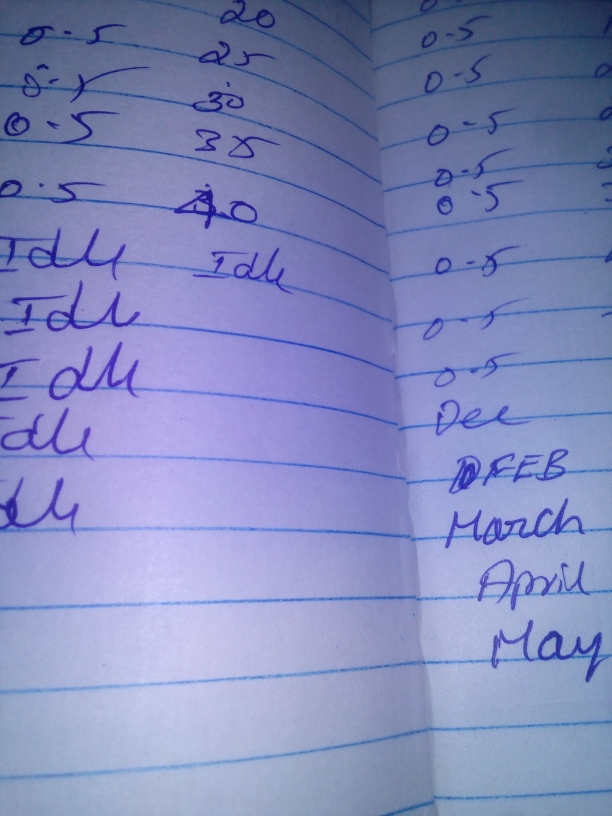 20
0-5 25
30
0-5 35
0.5 40
Idk Idk
Idk
Idk
Idk
Idk
0-5
0-5
0-5
0-5
0-5
0-5
0-5
0-5
Dec
FEB
March
April
May